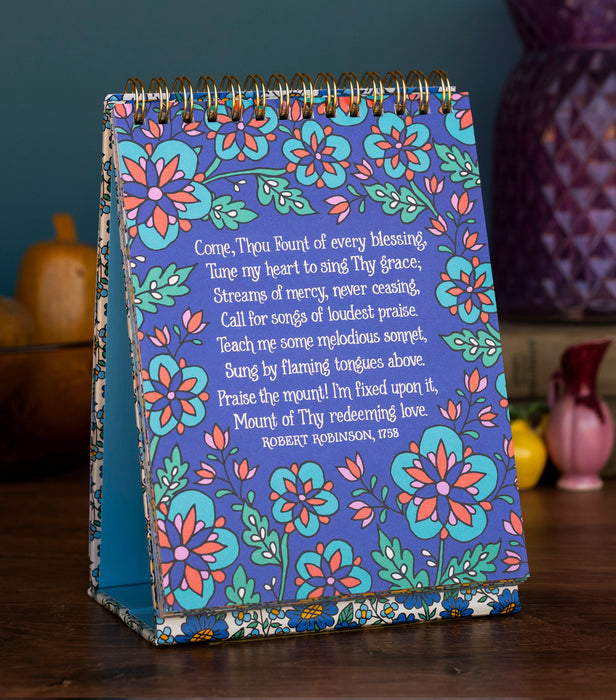 Come, Thou Fount of every blessing,
Tune my heart to sing Thy grace;
Streams of mercy, never ceasing,
Call for songs of loudest praise.
Teach me some melodious sonnet,
Sung by flaming tongues above.
Praise the mount! I'm fixed upon it,
Mount of Thy redeeming love.
ROBERT ROBINSON, 1758